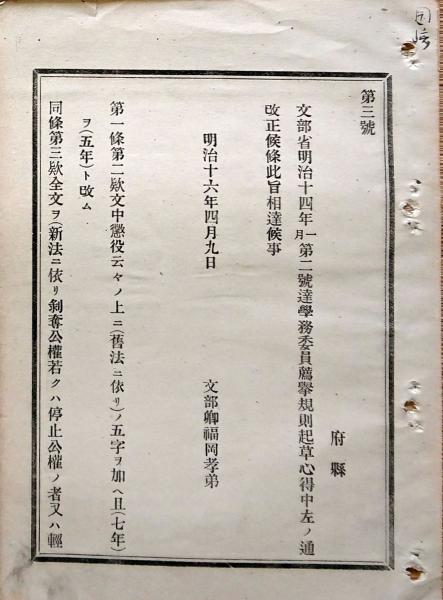 第三號
府縣
文部省明治十四年一月第二號達學務委員薦擧規則起草心得中左ノ通
改正候條此旨相達候事
明治十六年四月九日
文部卿福岡孝弟
第一條第二欵文中懲役云々ノ上ニ(舊法ニ依リ)ノ五字ヲ加ヘ且(七年)
ヲ(五年)ト改ム
同條第三欵全文ヲ(新法ニ依リ剝奪公權若クハ停止公權ノ者又ハ輕